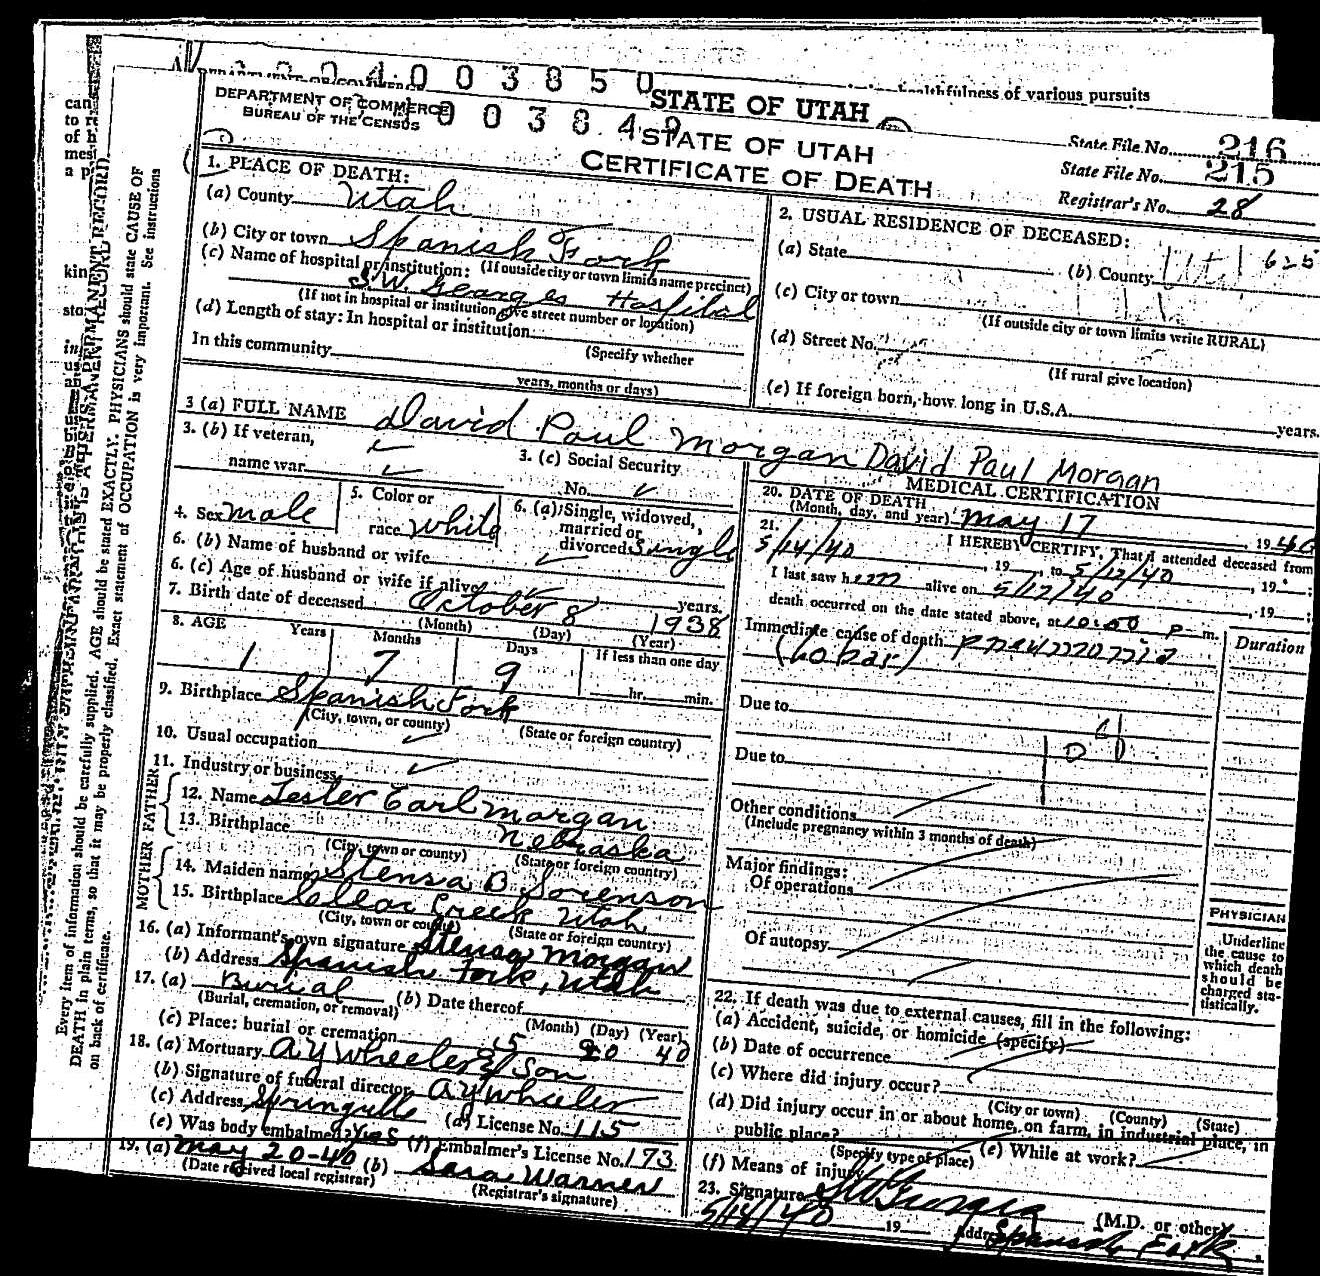 0 0 3 8 5 0
STATE OF UTAH
healthfulness of various pursuits
DEPARTMENT OF COMMERCE
BUREAU OF THE CENSUS
0 0 3 8 4 9
STATE OF UTAH
CERTIFICATE OF DEATH
State File No. 216
State File No. 215
Registrar's No. 28
1. PLACE OF DEATH:
(a) County Utah
(b) City or town Spanish Fork
(If outside city or town limits name precinct)
(c) Name of hospital or institution:
Hospital
(If not in hospital or institution give street number or location)
(d) Length of stay: In hospital or institution
(Specify whether
In this community
years, months or days)
2. USUAL RESIDENCE OF DECEASED:
(a) State
(b) County Utah 625
(c) City or town
(If outside city or town limits write RURAL)
(d) Street No.
(If rural give location)
(e) If foreign born, how long in U.S.A. years.
3 (a) FULL NAME David Paul Morgan David Paul Morgan
3. (b) If veteran,
name war
3. (c) Social Security
No.
4. Sex male
5. Color or
race white
6. (a) Single, widowed,
married or
divorced Single
6. (b) Name of husband or wife
6. (c) Age of husband or wife if alive years.
7. Birth date of deceased October 8 1938
(Month) (Day) (Year)
8. AGE Years Months Days If less than one day
1 7 9 hr. min.
9. Birthplace Spanish Fork
(City, town, or county) (State or foreign country)
10. Usual occupation
11. Industry or business
FATHER
12. Name Lester Earl Morgan
13. Birthplace Nebraska
(City, town or county) (State or foreign country)
MOTHER
14. Maiden name Stensa B Sorenson
15. Birthplace Clear Creek Utah
(City, town or county) (State or foreign country)
16. (a) Informant's own signature Stensa Morgan
(b) Address Spanish Fork, Utah
17. (a) Burial (b) Date thereof
(Burial, cremation, or removal) (Month) (Day) (Year)
(c) Place: burial or cremation 5 20 40
18. (a) Mortuary A Y Wheeler & Son
(b) Signature of funeral director A Y Wheeler
(c) Address Springville (d) License No. 115
(e) Was body embalmed? Yes (f) Embalmer's License No. 173
19. (a) May 20-40 (b) Sara Warner
(Date received local registrar) (Registrar's signature)
MEDICAL CERTIFICATION
20. DATE OF DEATH
(Month, day, and year) May 17 1940
21. I HEREBY CERTIFY, That I attended deceased from
5/14/40, 19 , to 5/17/40, 19 ;
I last saw him alive on 5/17/40, 19 ;
death occurred on the date stated above, at 10:00 P m.
Immediate cause of death pneumonia
(Lobar)
Duration
Due to
Due to
Other conditions
(Include pregnancy within 3 months of death)
Major findings:
Of operations
Of autopsy
PHYSICIAN
Underline
the cause to
which death
should be
charged sta-
tistically.
22. If death was due to external causes, fill in the following:
(a) Accident, suicide, or homicide (specify)
(b) Date of occurrence
(c) Where did injury occur?
(City or town) (County) (State)
(d) Did injury occur in or about home, on farm, in industrial place, in
public place? (e) While at work?
(Specify type of place)
(f) Means of injury
23. Signature (M.D. or other)
5/18/40 19 Address Spanish Fork
Every item of information should be carefully supplied. AGE should be stated EXACTLY. PHYSICIANS should state CAUSE OF
DEATH in plain terms, so that it may be properly classified. Exact statement of OCCUPATION is very important. See instructions
on back of certificate.